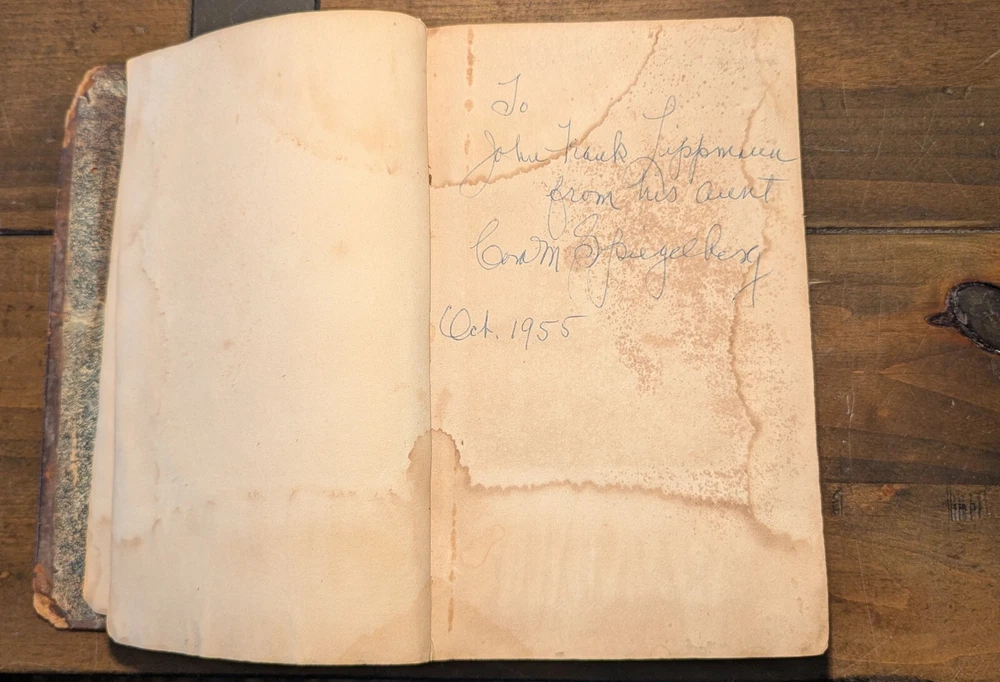 To
John Frank Lippmann
from his aunt
Cora M Spiegelberg
Oct. 1955